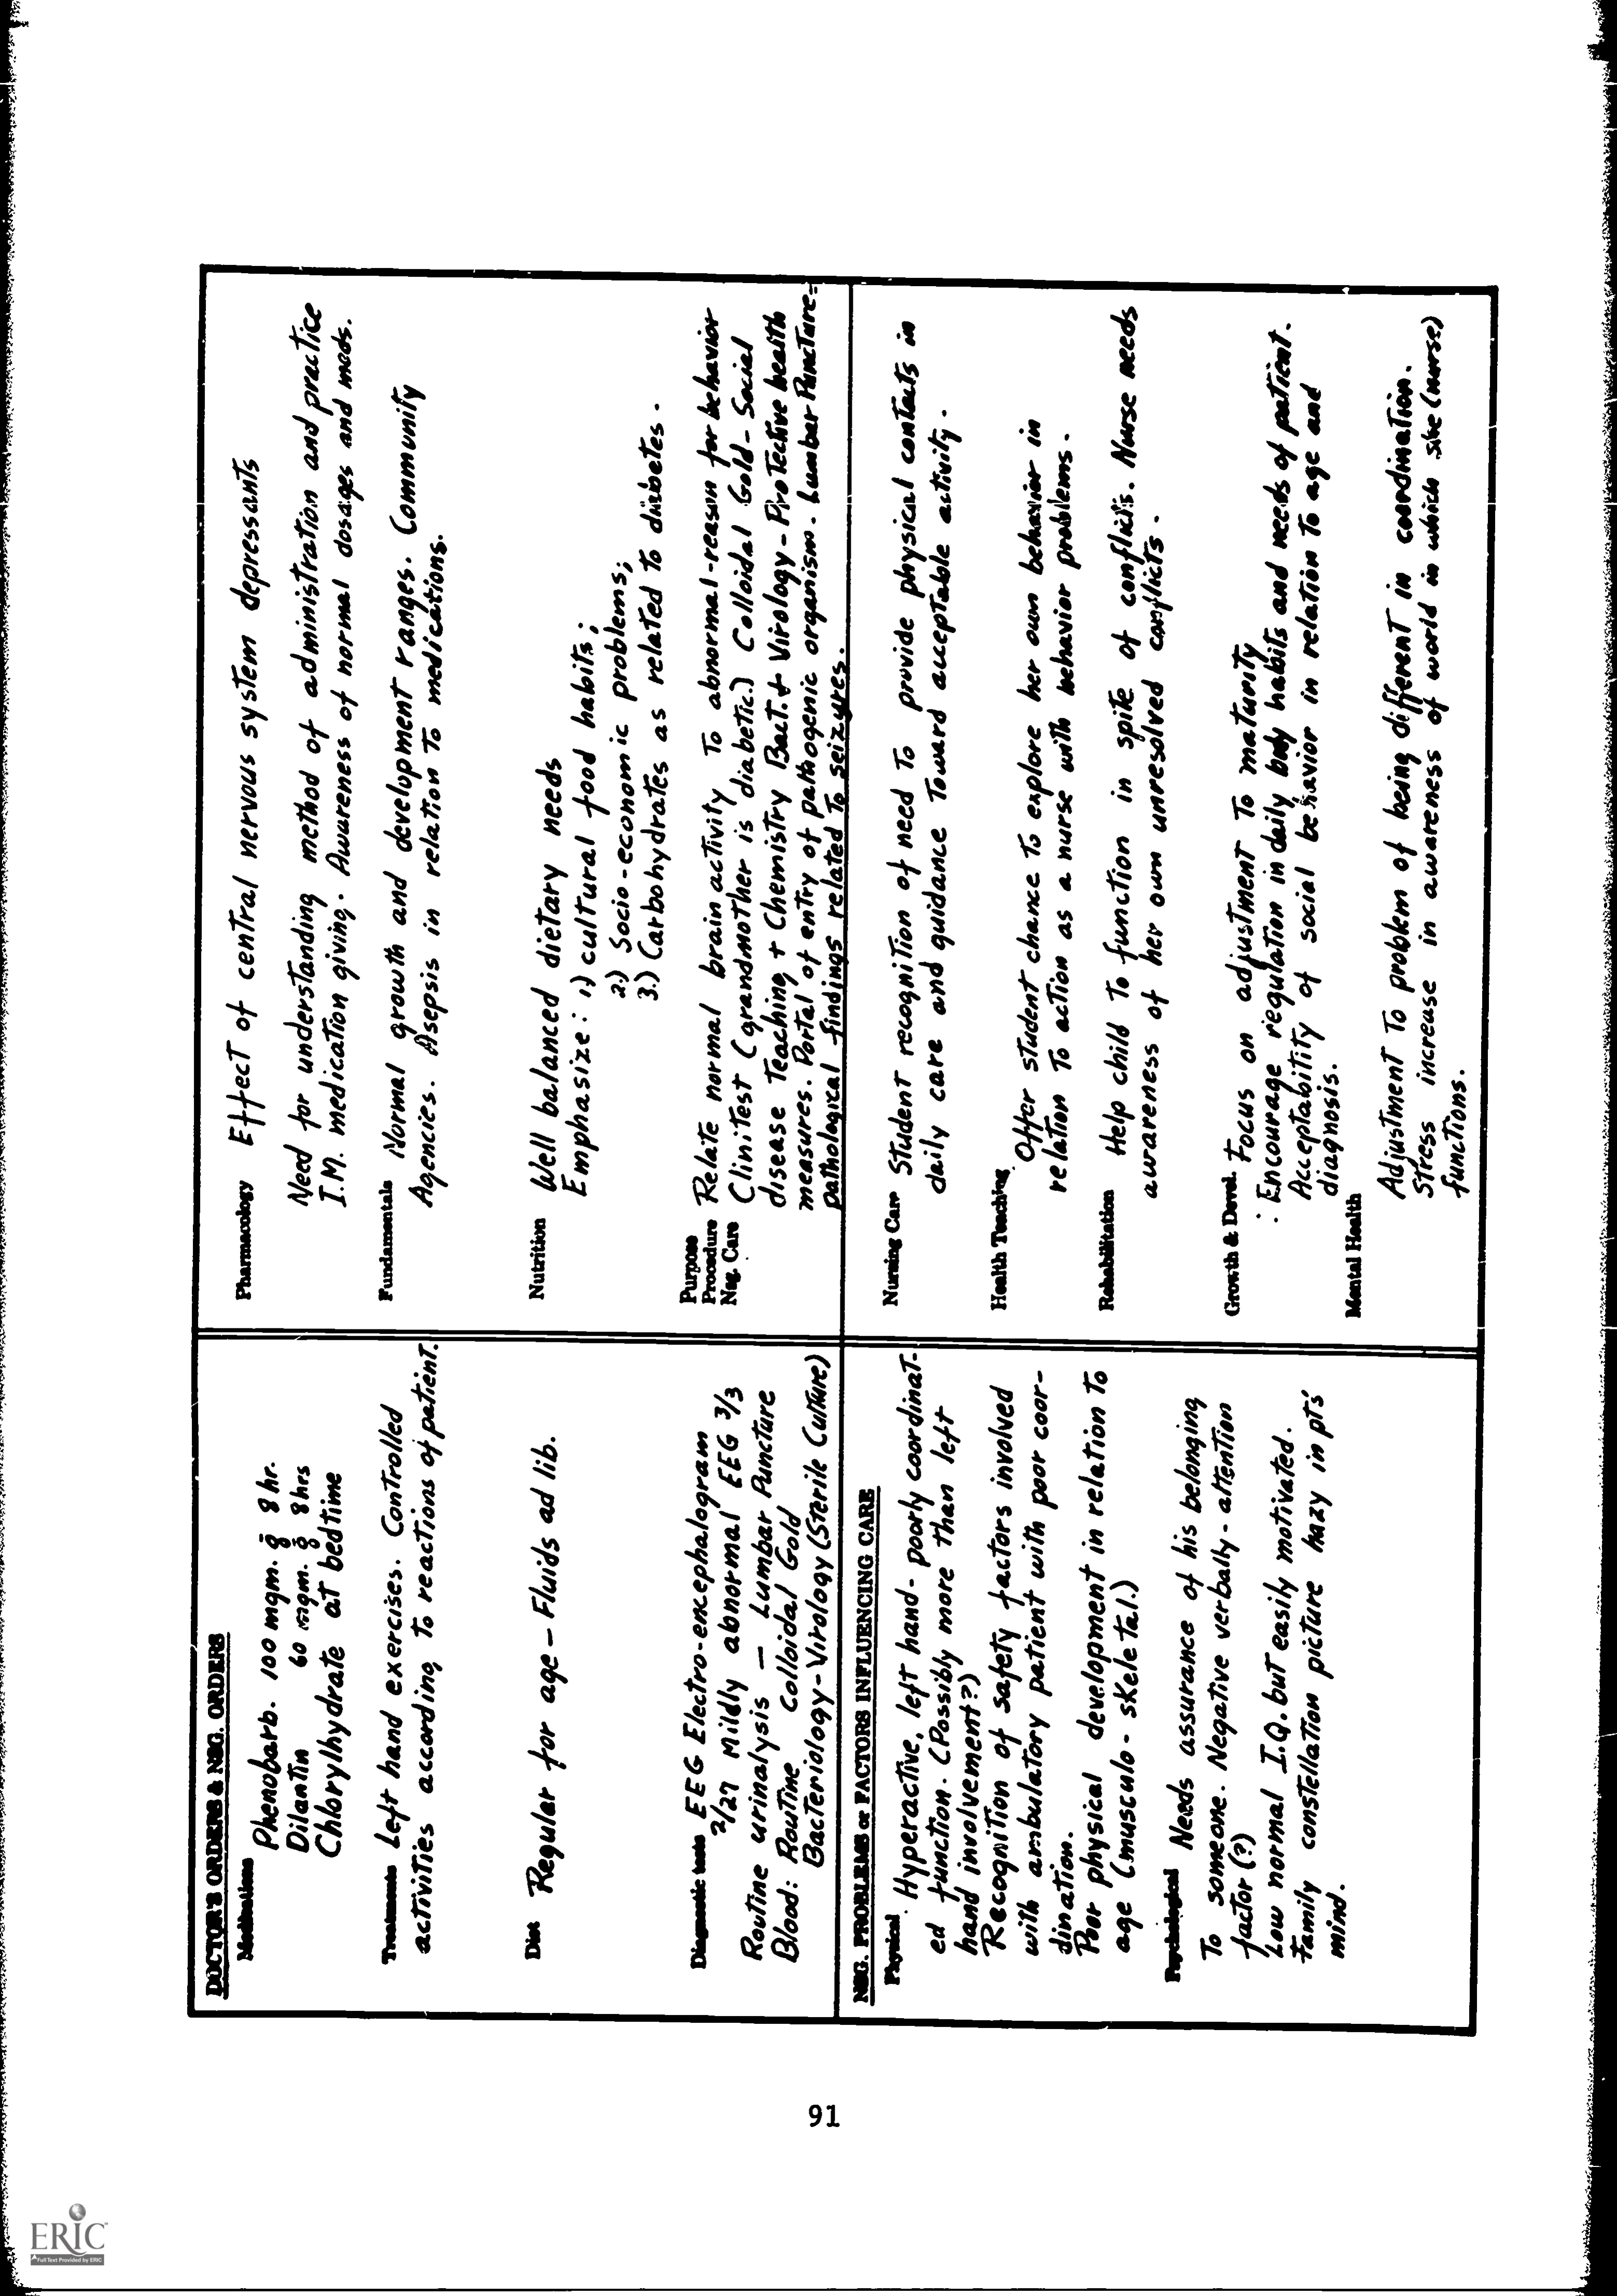 DOCTOR'S ORDERS & NSG. ORDERS
Medications Phenobarb. 100 mgm. q̄ 8 hr.
Dilantin 60 mgm. q̄ 8 hrs
Chlorylhydrate at bedtime
Treatments Left hand exercises. Controlled
activities according to reactions of patient.
Diet Regular for age - Fluids ad lib.
Diagnostic tests EEG Electro-encephalogram
2/27 Mildly abnormal EEG 3/3
Routine urinalysis - Lumbar Puncture
Blood: Routine Colloidal Gold
Bacteriology-Virology (Sterile Culture)
Pharmacology Effect of central nervous system depressants
Need for understanding method of administration and practice
I.M. medication giving. Awareness of normal dosages and meds.
Fundamentals Normal growth and development ranges. Community
Agencies. Asepsis in relation to medications.
Nutrition Well balanced dietary needs
Emphasize: 1.) cultural food habits;
2.) Socio-economic problems;
3.) Carbohydrates as related to diabetes.
Purpose
Procedure
Nsg. Care
Relate normal brain activity to abnormal-reason for behavior
Clinitest (grandmother is diabetic.) Colloidal Gold - Social
disease teaching + Chemistry Bact. + Virology - Protective health
measures. Portal of entry of pathogenic organism. Lumbar Puncture-
pathological findings related to seizures.
NSG. PROBLEMS or FACTORS INFLUENCING CARE
Physical Hyperactive, left hand - poorly coordinat-
ed function. (Possibly more than left
hand involvement?)
Recognition of safety factors involved
with ambulatory patient with poor coor-
dination.
Poor physical development in relation to
age (musculo-skeletal.)
Psychological Needs assurance of his belonging
to someone. Negative verbally - attention
factor (?)
Low normal I.Q. but easily motivated.
Family constellation picture hazy in pts'
mind.
Nursing Care Student recognition of need to provide physical contacts in
daily care and guidance toward acceptable activity.
Health Teaching Offer student chance to explore her own behavior in
relation to action as a nurse with behavior problems.
Rehabilitation Help child to function in spite of conflicts. Nurse needs
awareness of her own unresolved conflicts.
Growth & Devel. Focus on adjustment to maturity
: Encourage regulation in daily body habits and needs of patient.
Acceptability of social behavior in relation to age and
diagnosis.
Mental Health
Adjustment to problem of being different in coordination.
Stress increase in awareness of world in which she (nurse)
functions.
91
ERIC
Full Text Provided by ERIC